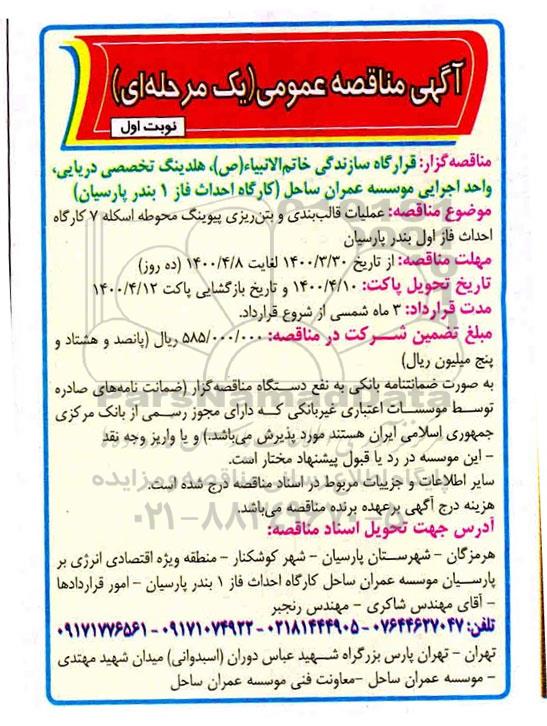 آگهی مناقصه عمومی(یک مرحله‌ای)
نوبت اول
مناقصه‌گزار: قرارگاه سازندگی خاتم‌الانبیاء(ص)، هلدینگ تخصصی دریایی،
واحد اجرایی موسسه عمران ساحل (کارگاه احداث فاز ۱ بندر پارسیان)
موضوع مناقصه: عملیات قالب‌بندی و بتن‌ریزی پیوینگ محوطه اسکله ۷ کارگاه
احداث فاز اول بندر پارسیان
مهلت مناقصه: از تاریخ ۱۴۰۰/۳/۳۰ لغایت ۱۴۰۰/۴/۸ (ده روز)
تاریخ تحویل پاکت: ۱۴۰۰/۴/۱۰ و تاریخ بازگشایی پاکت ۱۴۰۰/۴/۱۲
مدت قرارداد: ۳ ماه شمسی از شروع قرارداد.
مبلغ تضمین شرکت در مناقصه: ۵۸۵/۰۰۰/۰۰۰ ریال (پانصد و هشتاد و
پنج میلیون ریال)
به صورت ضمانتنامه بانکی به نفع دستگاه مناقصه‌گزار (ضمانت نامه‌های صادره
توسط موسسات اعتباری غیربانکی که دارای مجوز رسمی از بانک مرکزی
جمهوری اسلامی ایران هستند مورد پذیرش می‌باشد.) و یا واریز وجه نقد
- این موسسه در رد یا قبول پیشنهاد مختار است.
سایر اطلاعات و جزییات مربوط در اسناد مناقصه درج شده است.
هزینه درج آگهی برعهده برنده مناقصه می‌باشد.
آدرس جهت تحویل اسناد مناقصه:
هرمزگان - شهرستان پارسیان - شهر کوشکنار - منطقه ویژه اقتصادی انرژی بر
پارسیان موسسه عمران ساحل کارگاه احداث فاز ۱ بندر پارسیان - امور قراردادها
- آقای مهندس شاکری - مهندس رنجبر
تلفن: ۰۷۶۴۴۶۳۷۰۴۷ - ۰۲۱۸۱۴۴۴۹۰۵ - ۰۹۱۷۱۰۷۴۹۲۲ - ۰۹۱۷۱۷۷۶۵۶۱
تهران - تهران پارس بزرگراه شهید عباس دوران (اسبدوانی) میدان شهید مهتدی
- موسسه عمران ساحل -معاونت فنی موسسه عمران ساحل
ParsNamadData
پایگاه اطلاع رسانی مناقصه و مزایده
۰۲۱-۸۸۳۴۹۶۷۰-۵